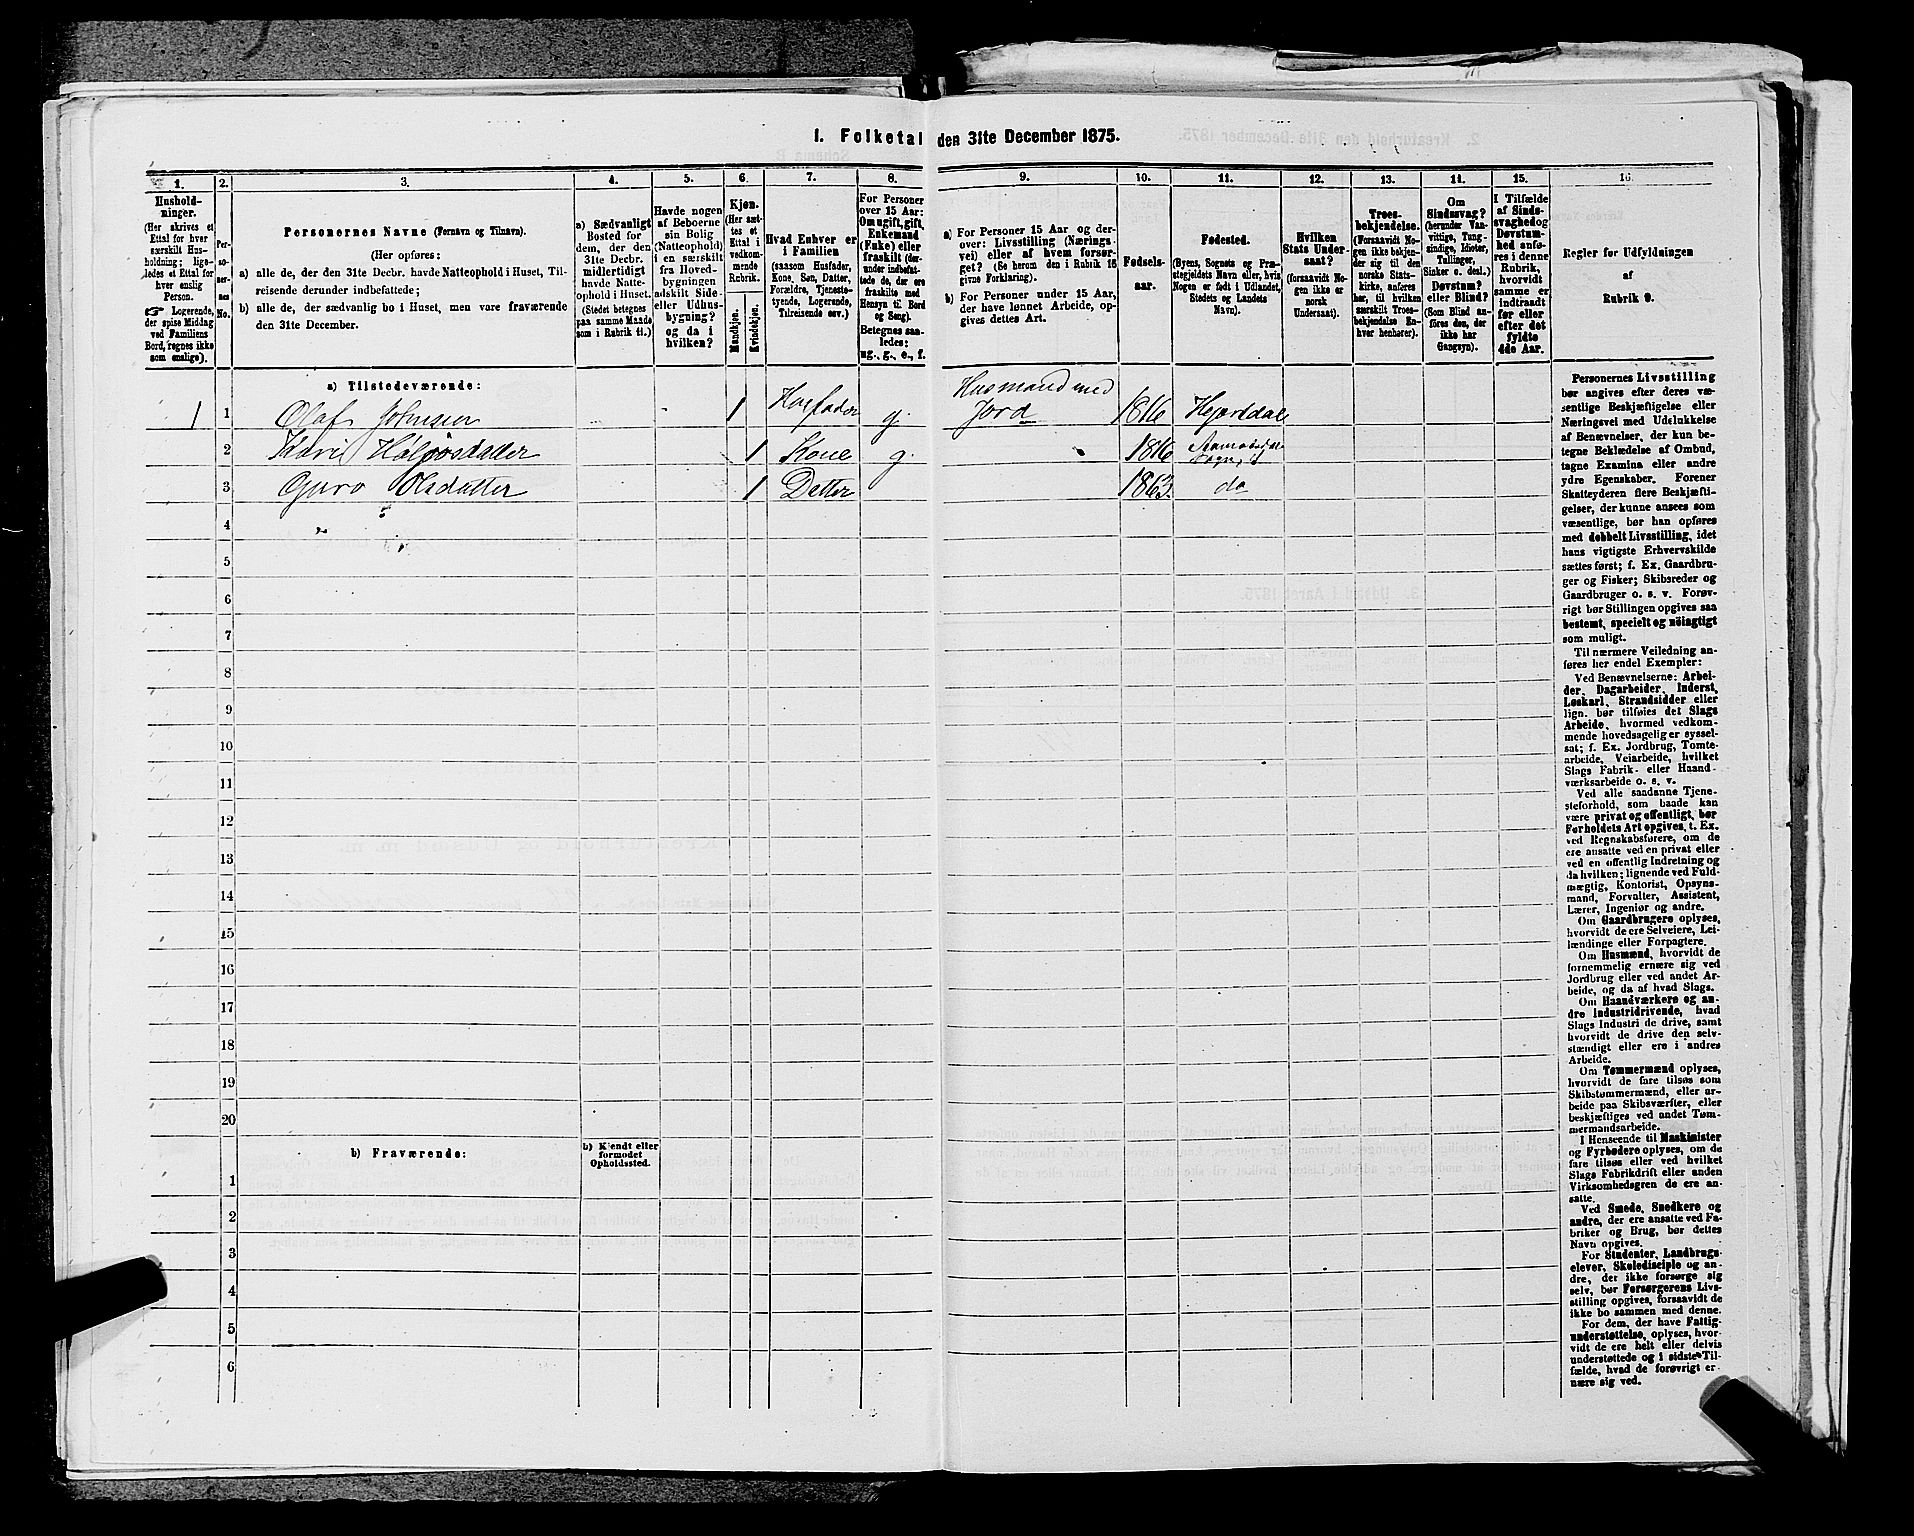 1. Folketal den 31te December 1875.
1.
2.
3.
4.
5.
6.
7.
8.
9.
10.
11.
12.
13.
14.
15.
16.
Hushold-
ninger.
(Her skrives et
Ettal for hver
særskilt Hus-
holdning; lige-
ledes et Ettal for
hver enslig
Person.
☞ Logerende,
der spise Middag
ved Familiens
Bord, regnes ikke
som enslige).
Per-
so-
ner-
nes
No.
Personernes Navne (Fornavn og Tilnavn).
(Her opføres:
a) alle de, der den 31te Decbr. havde Natteophold i Huset, Til-
reisende derunder indbefattede;
b) alle de, der sædvanlig bo i Huset, men vare fraværende
den 31te December.
a) Sædvanligt
Bosted for
dem, der den
31te Decbr.
midlertidigt
havde Natte-
ophold i Huset.
(Stedet betegnes
paa samme Maade
som i Rubrik 11.)
Havde nogen
af Beboerne
sin Bolig
(Natteophold)
i en særskilt
fra Hoved-
bygningen
adskilt Side-
eller Udhus-
bygning?
og da i
hvilken?
Kjøn.
(Her sæt-
tes et
Ettal i
vedkom-
mende
Rubrik.
Mandkjøn.
Kvindekjøn.
Hvad Enhver er
i Familien
(saasom Husfader,
Kone, Søn, Datter,
Forældre, Tjeneste-
tyende, Logerende,
Tilreisende osv.)
For Personer
over 15 Aar:
Om ugift, gift,
Enkemand
(Enke) eller
fraskilt (der-
under indbefat-
tede de, der ere
fraskilte med
Hensyn til Bord
og Seng).
Betegnes saa-
ledes:
ug., g., e., f.
a) For Personer 15 Aar og der-
over: Livsstilling (Nærings-
vei) eller af hvem forsør-
get? (Se herom den i Rubrik 16
givne Forklaring).
b) For Personer under 15 Aar,
der have lønnet Arbeide, op-
gives dettes Art.
Fødsels-
aar.
Fødested.
(Byens, Sognets og Præ-
stegjeldets Navn eller, hvis
Nogen er født i Udlandet,
Stedets og Landets
Navn).
Hvilken
Stats Under-
saat?
(forsaavidt No-
gen ikke er
norsk
Undersaat).
Troes-
bekjendelse.
(Forsaavidt No-
gen ikke bekjen-
der sig til den
norske Stats-
kirke, anføres
her, til hvilken
særskilt Troes-
bekjendelse En-
hver henhører).
Om
Sindssvag?
(herunder Van-
vittige, Tung-
sindige, Idioter,
Tullinger,
Sinker o. desl.)
Døvstum?
eller Blind?
(Som Blind an-
føres den, der
ikke har
Gangsyn).
I Tilfælde
af Sinds-
svaghed og
Døvstum-
hed anfø-
res i denne
Rubrik,
hvorvidt
samme er
indtraadt
før eller
efter det
fyldte
4de Aar.
Regler for Udfyldningen
af
Rubrik 9.
a) Tilstedeværende:
1 1 Olaf Johnsen 1 Husfader g. Husmand med
Jord 1816 Hjertdal
2 Kari 1 Kone g. 1816
3 Guro Olsdatter 1 Datter 1863. do
4
5
6
7
8
9
10
11
12
13
14
15
16
17
18
19
20
b) Fraværende:
b) Kjendt eller
formodet
Opholdssted.
1
2
3
4
5
6
Personernes Livsstilling
bør angives efter deres væ-
sentlige Beskjæftigelse eller
Næringsvei med Udelukkelse
af Benævnelser, der kun be-
tegne Beklædelse af Ombud,
tagne Examina eller andre
ydre Egenskaber. Forener
Skatteyderen flere Beskjæfti-
gelser, der kunne ansees som
væsentlige, bør han opføres
med dobbelt Livsstilling, idet
hans vigtigste Erhvervskilde
sættes først; f. Ex. Gaardbru-
ger og Fisker; Skibsreder og
Gaardbruger o. s. v. Forøv-
rigt bør Stillingen opgives saa
bestemt, specielt og nöiagtigt
som muligt.
Til nærmere Veiledning an-
føres her endel Exempler:
Ved Benævnelserne: Arbei-
der, Dagarbeider, Inderst,
Løskarl, Strandsidder eller
lign. bør tilføies det Slags
Arbeide, hvormed vedkom-
mende hovedsagelig er syssel-
sat; f. Ex. Jordbrug, Tomte-
arbeide, Veiarbeide, hvilket
Slags Fabrik- eller Haand-
værksarbeide o. s. v.
Ved alle saadanne Tjene-
steforhold, som baade kan
være privat og offentligt, bør
Forholdets Art opgives, t. Ex.
ved Regnskabsførere, om de
ere ansatte ved en privat eller
ved en offentlig Indretning og
da hvilken; lignende ved Fuld-
mægtig, Kontorist, Opsyns-
mand, Forvalter, Assistent,
Lærer, Ingeniør og andre.
Om Gaardbrugere oplyses,
hvorvidt de ere Selveiere, Lei-
lændinge eller Forpagtere.
Om Husmænd, hvorvidt de
fornemmelig ernære sig ved
Jordbrug eller ved andet Ar-
beide, og da af hvad Slags.
Om Haandværkere og an-
dre Industridrivende, hvad
Slags Industri de drive, samt
hvorvidt de drive den selv-
stændigt eller ere i andres
Arbeide.
Om Tømmermænd oplyses,
hvorvidt de fare tilsøs som
Skibstømmermænd, eller ar-
beide paa Skibsværfter, eller
beskjæftiges ved andet Tøm-
mermandsarbeide.
I Henseende til Maskinister
og Fyrbødere oplyses, om de
fare tilsøs eller ved hvilket
Slags Fabrikdrift eller anden
Virksomhedsgren de ere an-
satte.
Ved Smede, Snedkere og
andre, der ere ansatte ved Fa-
briker og Brug, bør dettes
Navn opgives.
For Studenter, Landbrugs-
elever, Skoledisciple og an-
dre, der ikke forsørge sig
selv, bør Forsørgerens Livs-
stilling opgives, forsaavidt de
ikke bo sammen med denne.
For dem, der have Fattig-
understøttelse, oplyses, hvor-
vidt de ere helt eller delvis
understøttede og i sidste Til-
fælde, hvad de forøvrigt er-
nære sig ved.